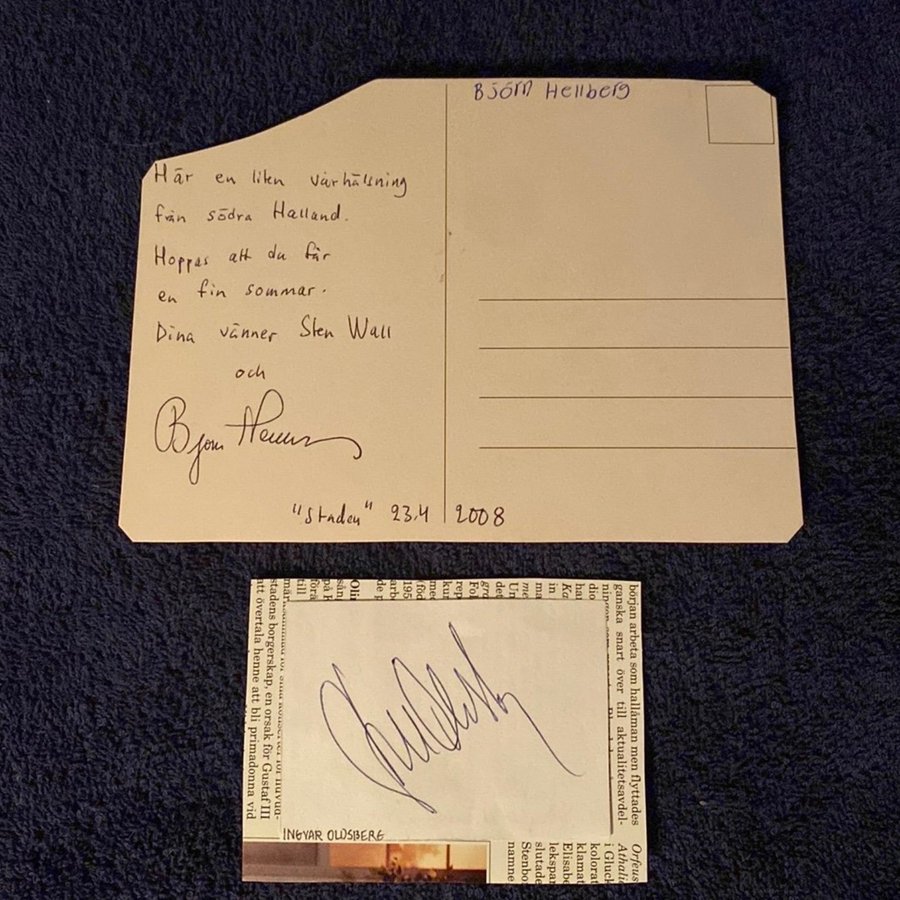 Björn Hellberg
Här en liten vårhälsning
från södra Halland.
Hoppas att du får
en fin sommar.
Dina vänner Sten Wall
och
Björn Hellberg
"Staden" 23.4 2008
början arbeta som hallåman men flyttades
ganska snart över till aktualitetsavdel-
stadens borgerskap, en orsak för Gustaf III
att övertala henne att bli primadonna vid
Orfeus
i Gluck
kolorat
klamat
Elisabe
lekspar
slutade
Stenbo
namne
INGVAR OLDSBERG